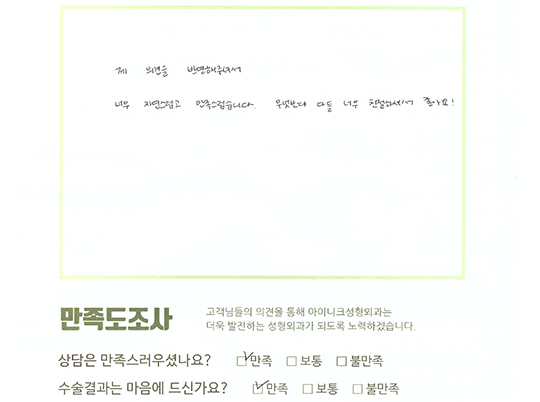 제 의견을 반영해주셔서
너무 자연스럽고 만족스럽습니다. 무엇보다 다들 너무 친절하셔서 좋아요!
만족도조사
고객님들의 의견을 통해 아이니크성형외과는
더욱 발전하는 성형외과가 되도록 노력하겠습니다.
상담은 만족스러우셨나요? ☑만족 □보통 □불만족
수술결과는 마음에 드신가요? ☑만족 □보통 □불만족